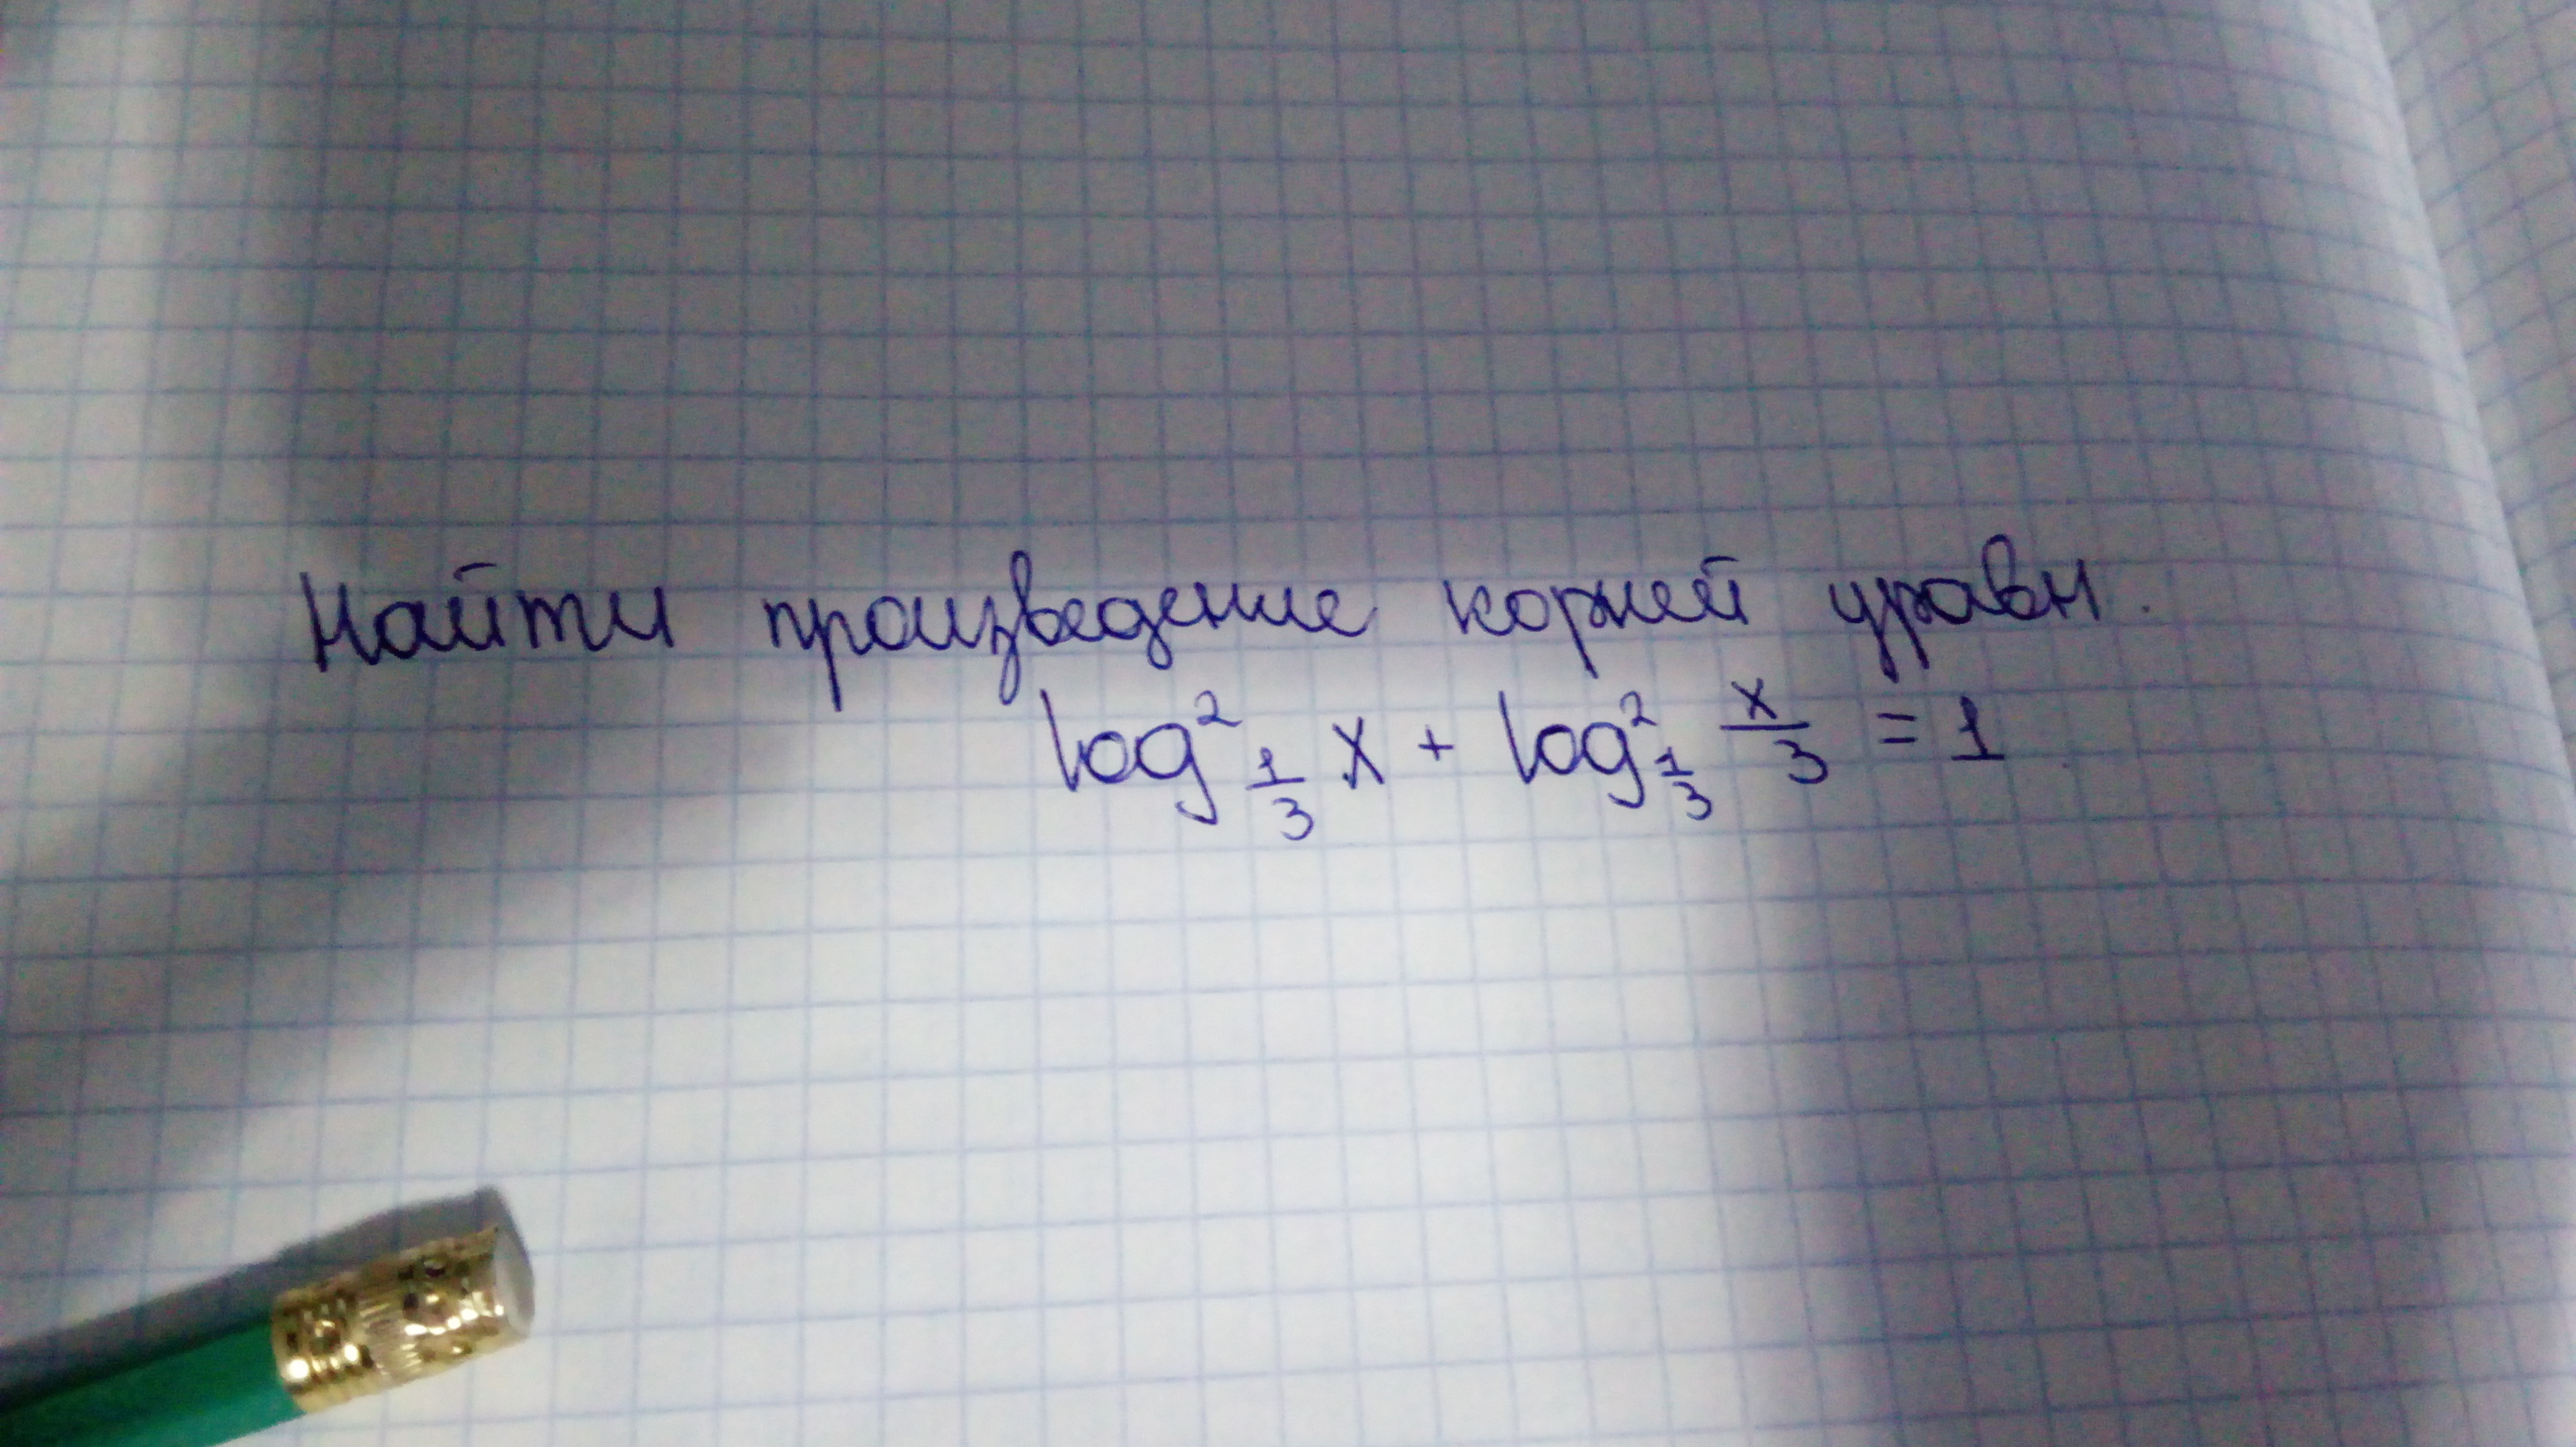 Найти произведение корней уравн.
log²_{1/3} x + log²_{1/3} x/3 = 1